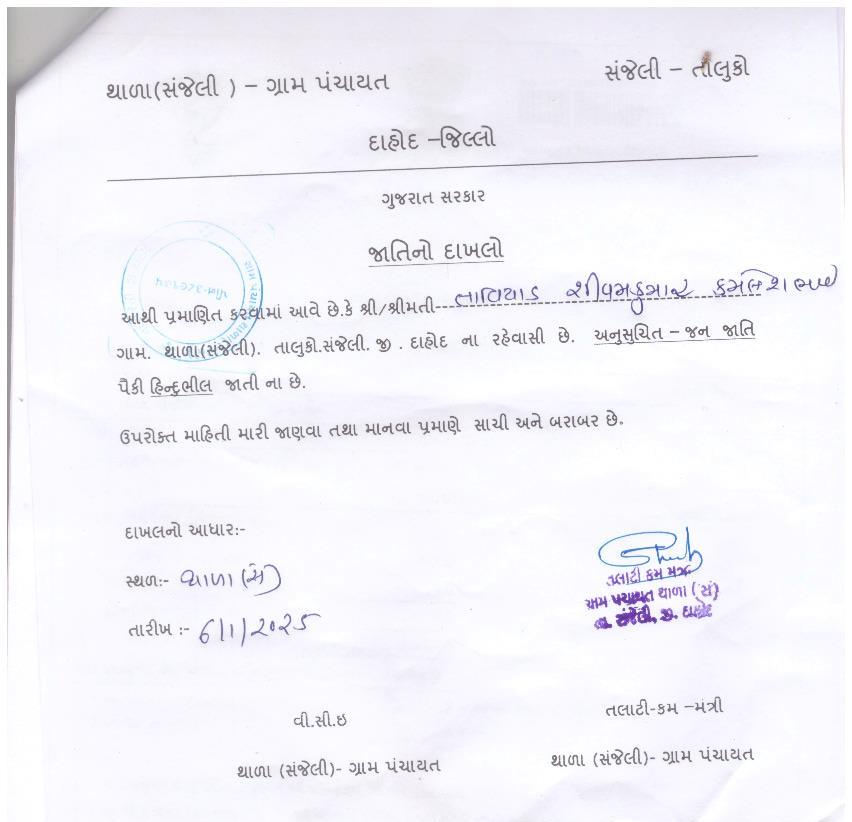 થાળા(સંજેલી ) – ગ્રામ પંચાયત
સંજેલી – તાલુકો
દાહોદ –જિલ્લો
ગુજરાત સરકાર
જાતિનો દાખલો
આથી પ્રમાણિત કરવામાં આવે છે.કે શ્રી/શ્રીમતી તાવિયાડ શીવમકુમાર કમલેશભાઈ
ગામ. થાળા(સંજેલી). તાલુકો.સંજેલી. જી . દાહોદ ના રહેવાસી છે. અનુસુચિત – જન જાતિ
પૈકી હિન્દુભીલ જાતી ના છે.
ઉપરોક્ત માહિતી મારી જાણવા તથા માનવા પ્રમાણે સાચી અને બરાબર છે.
દાખલનો આધાર:-
સ્થળ:- થાળા (સં)
તારીખ :- 6/1/2025
તલાટી કમ મંત્રી
ગ્રામ પંચાયત થાળા (સં)
તા. સંજેલી, જી. દાહોદ
વી.સી.ઇ
થાળા (સંજેલી)- ગ્રામ પંચાયત
તલાટી-કમ –મંત્રી
થાળા (સંજેલી)- ગ્રામ પંચાયત